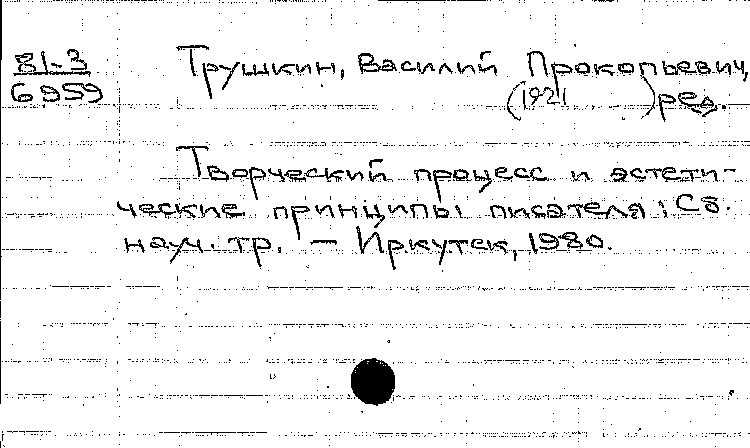 81-3
6959
Трушкин, Василий Прокопьевич,
(1921 - ) ред.
Творческий процесс и эстети-
ческие принципы писателя: Сб.
науч. тр. — Иркутск, 1980.